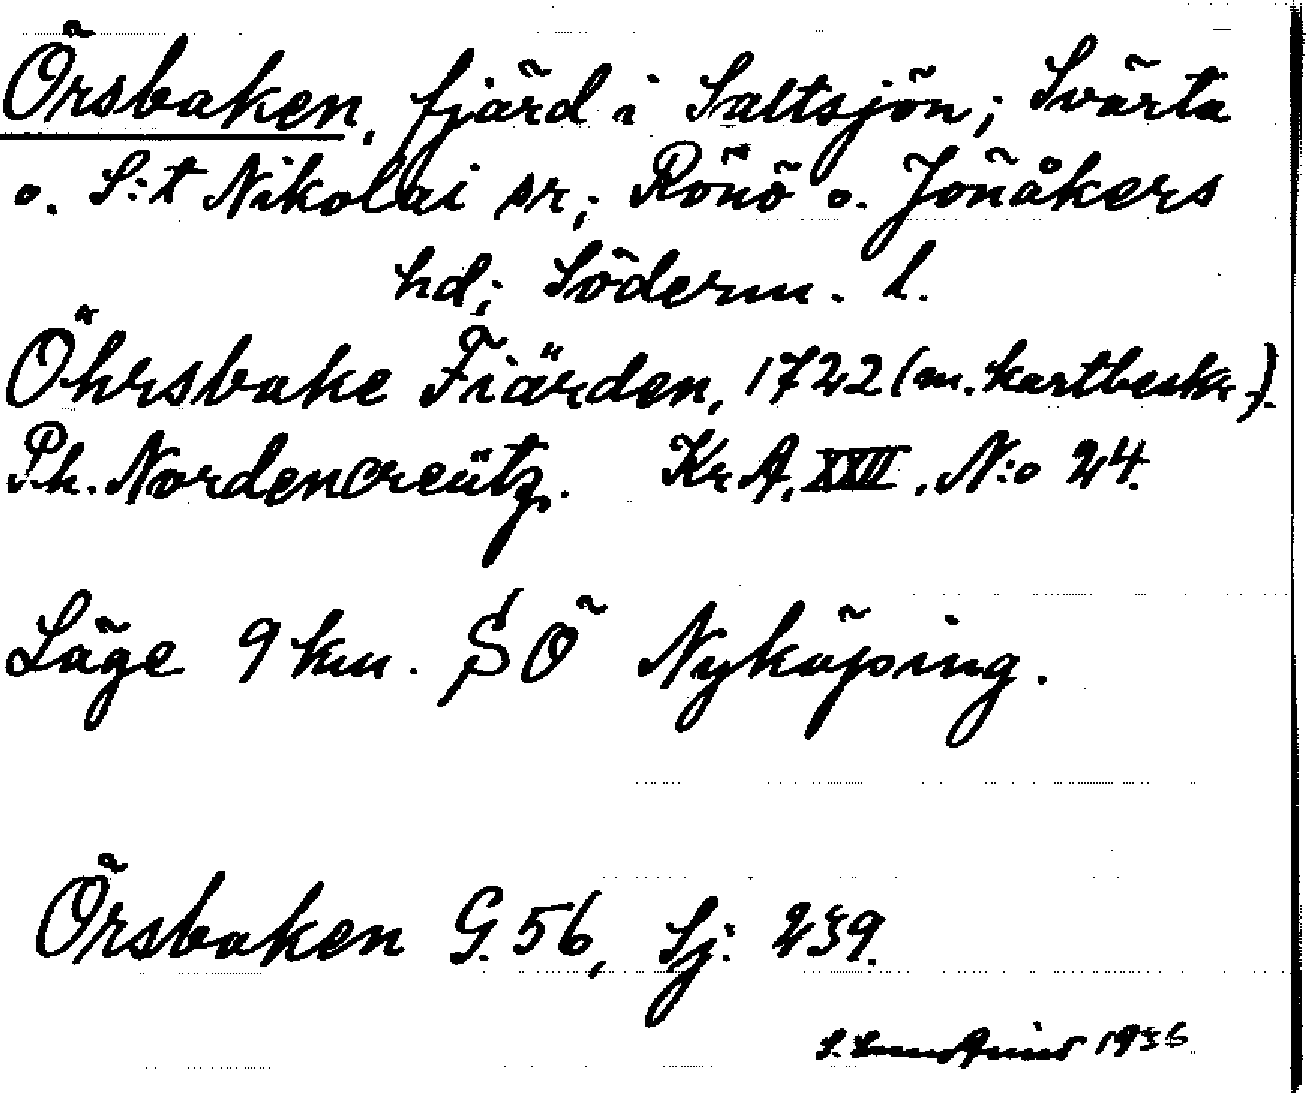 Örsbaken, fjärd i Saltsjön; Svärta
o. S:t Nikolai sr; Rönö o. Jönåkers
hd; Söderm. l.
Öhrsbake Fiärden, 1722 (m. kartbeskr.).
Ph. Nordencreütz. Kr. A. XXII. N:o 24.
Läge 9 km. SÖ Nyköping.
Örsbaken G. 56, Sj: 239.
S. 1936